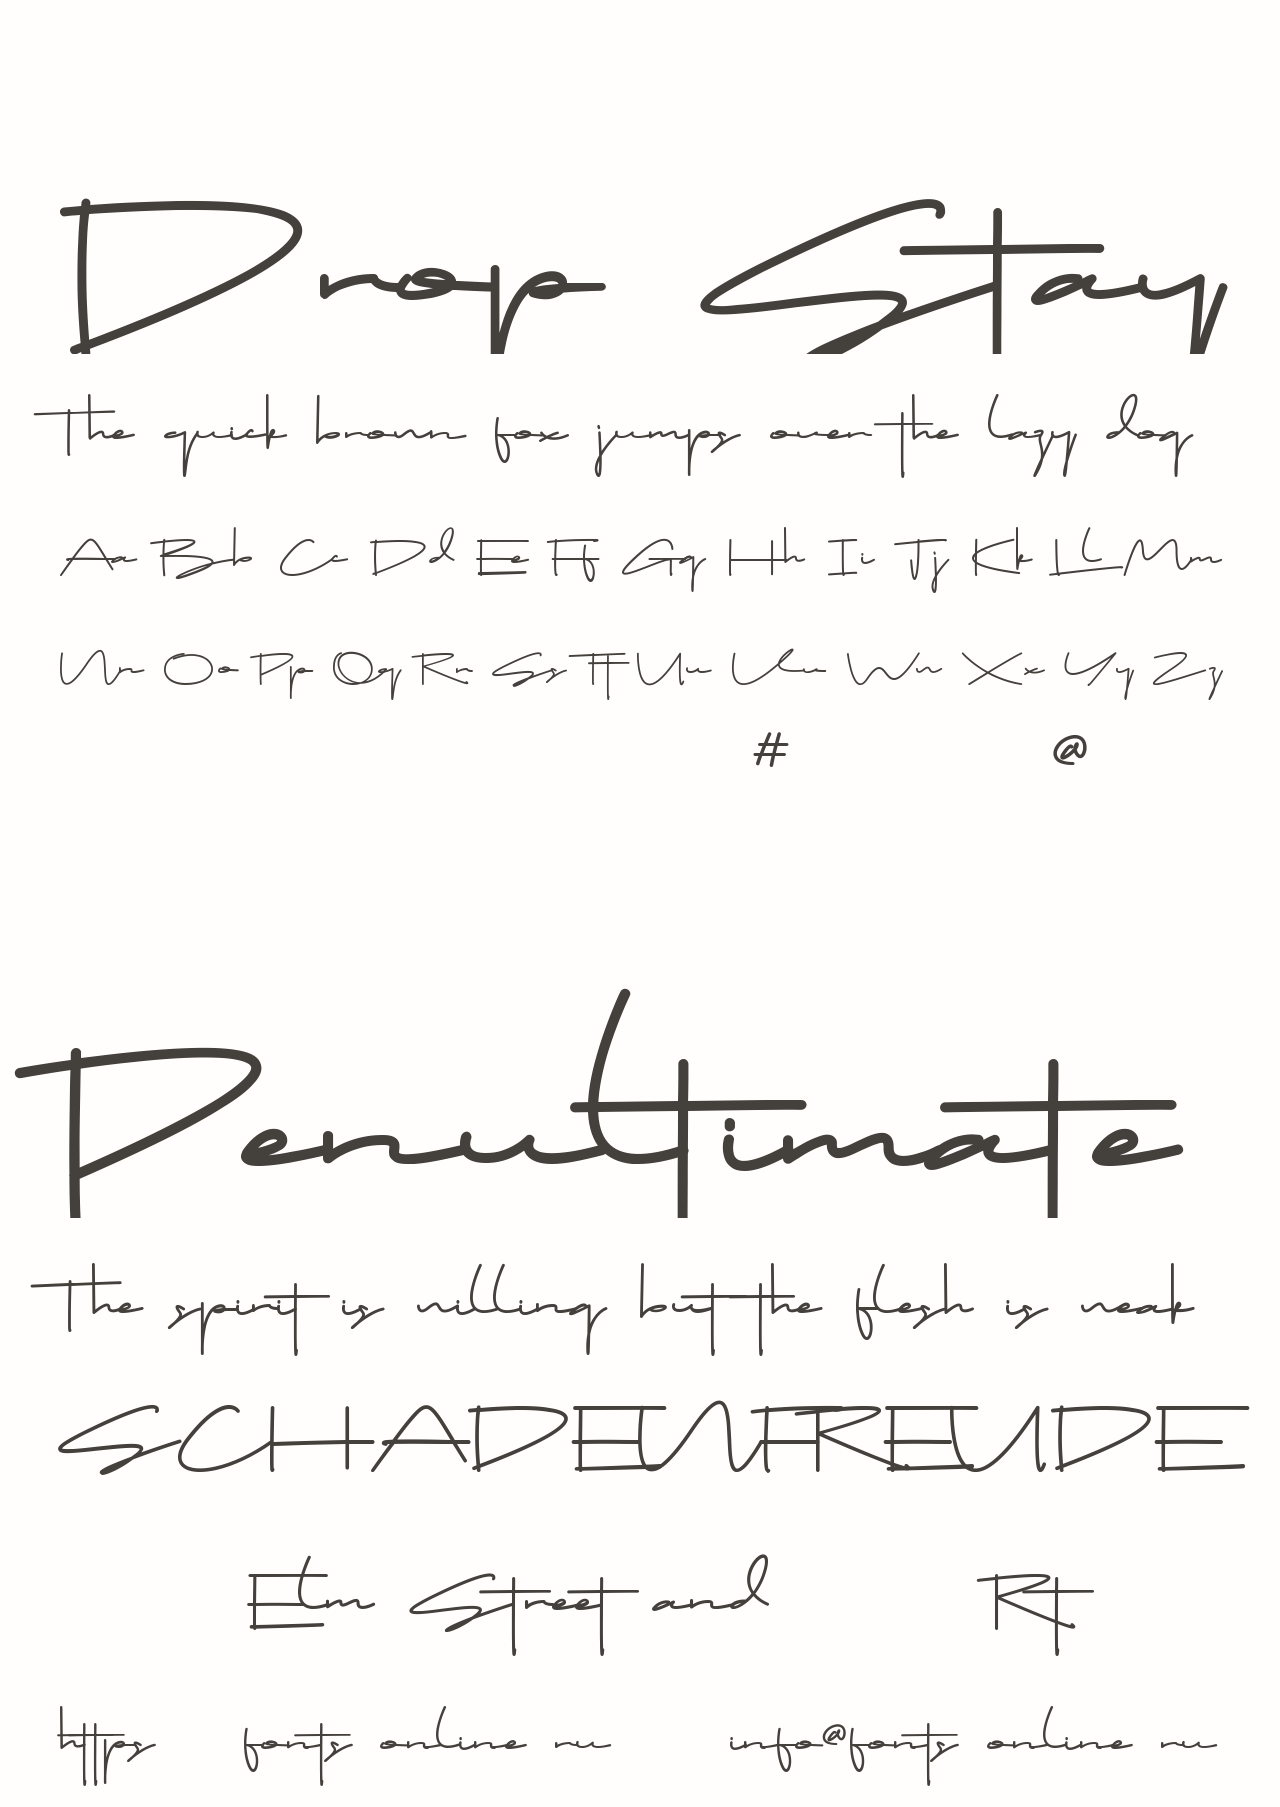 Drop Stay
The quick brown fox jumps over the lazy dog
Aa Bb Cc Dd Ee Ff Gg Hh Ii Jj Kk Ll Mm
Nn Oo Pp Qq Rr Ss Tt Uu Vv Ww Xx Yy Zz
# @
Penultimate
The spirit is willing but the flesh is weak
SCHADENFREUDE
Elm Street and Rt
https fonts online ru
info@fonts online ru